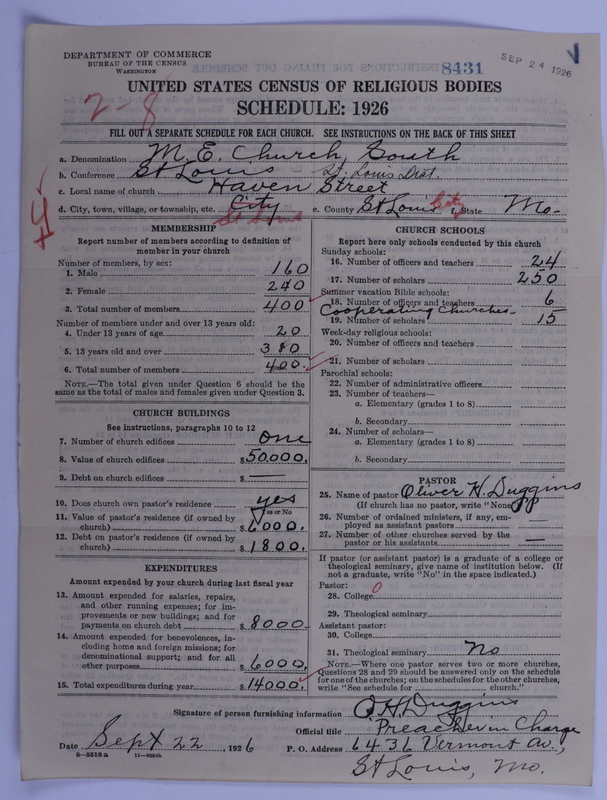 DEPARTMENT OF COMMERCE
BUREAU OF THE CENSUS
WASHINGTON
8431
SEP 24 1926
2-8
UNITED STATES CENSUS OF RELIGIOUS BODIES
SCHEDULE: 1926
FILL OUT A SEPARATE SCHEDULE FOR EACH CHURCH. SEE INSTRUCTIONS ON THE BACK OF THIS SHEET
a. Denomination M. E. Church, South
b. Conference St Louis - St. Louis Dist.
c. Local name of church Haven Street
d. City, town, village, or township, etc. City St Louis e. County St Louis City f. State Mo.
MEMBERSHIP
Report number of members according to definition of member in your church
Number of members, by sex:
1. Male 160
2. Female 240
3. Total number of members 400
Number of members under and over 13 years old:
4. Under 13 years of age 20
5. 13 years old and over 380
6. Total number of members 400
NOTE.—The total given under Question 6 should be the same as the total of males and females given under Question 3.
CHURCH BUILDINGS
See instructions, paragraphs 10 to 12
7. Number of church edifices One
8. Value of church edifices $50,000.
9. Debt on church edifices $ —
10. Does church own pastor's residence yes
Yes or No
11. Value of pastor's residence (if owned by church) $ 000.
12. Debt on pastor's residence (if owned by church) $1800.
EXPENDITURES
Amount expended by your church during last fiscal year
13. Amount expended for salaries, repairs, and other running expenses; for improvements or new buildings; and for payments on church debt $8000
14. Amount expended for benevolences, including home and foreign missions; for denominational support; and for all other purposes $6000.
15. Total expenditures during year $14000.
CHURCH SCHOOLS
Report here only schools conducted by this church
Sunday schools:
16. Number of officers and teachers 24
17. Number of scholars 250
Summer vacation Bible schools:
18. Number of officers and teachers 6
Cooperating Churches-
19. Number of scholars 15
Week-day religious schools:
20. Number of officers and teachers
21. Number of scholars
Parochial schools:
22. Number of administrative officers
23. Number of teachers—
a. Elementary (grades 1 to 8)
b. Secondary
24. Number of scholars—
a. Elementary (grades 1 to 8)
b. Secondary
PASTOR
25. Name of pastor Oliver H. Duggins
(If church has no pastor, write "None")
26. Number of ordained ministers, if any, employed as assistant pastors —
27. Number of other churches served by the pastor or his assistants —
If pastor (or assistant pastor) is a graduate of a college or theological seminary, give name of institution below. (If not a graduate, write "No" in the space indicated.)
Pastor:
28. College 0
29. Theological seminary
Assistant pastor:
30. College
31. Theological seminary No
NOTE.—Where one pastor serves two or more churches, Questions 28 and 29 should be answered only on the schedule for one of the churches; on the schedules for the other churches, write "See schedule for church."
Signature of person furnishing information O. H. Duggins
Official title Preacher in Charge
Date Sept 22, 1926 P. O. Address 6431 Vermont Av.,
St Louis, Mo.